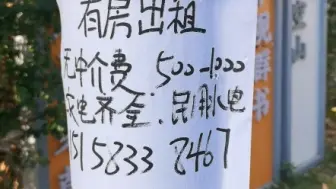 有房出租
无中介费.500-1000
家电齐全.民用水电
151 5833 8467